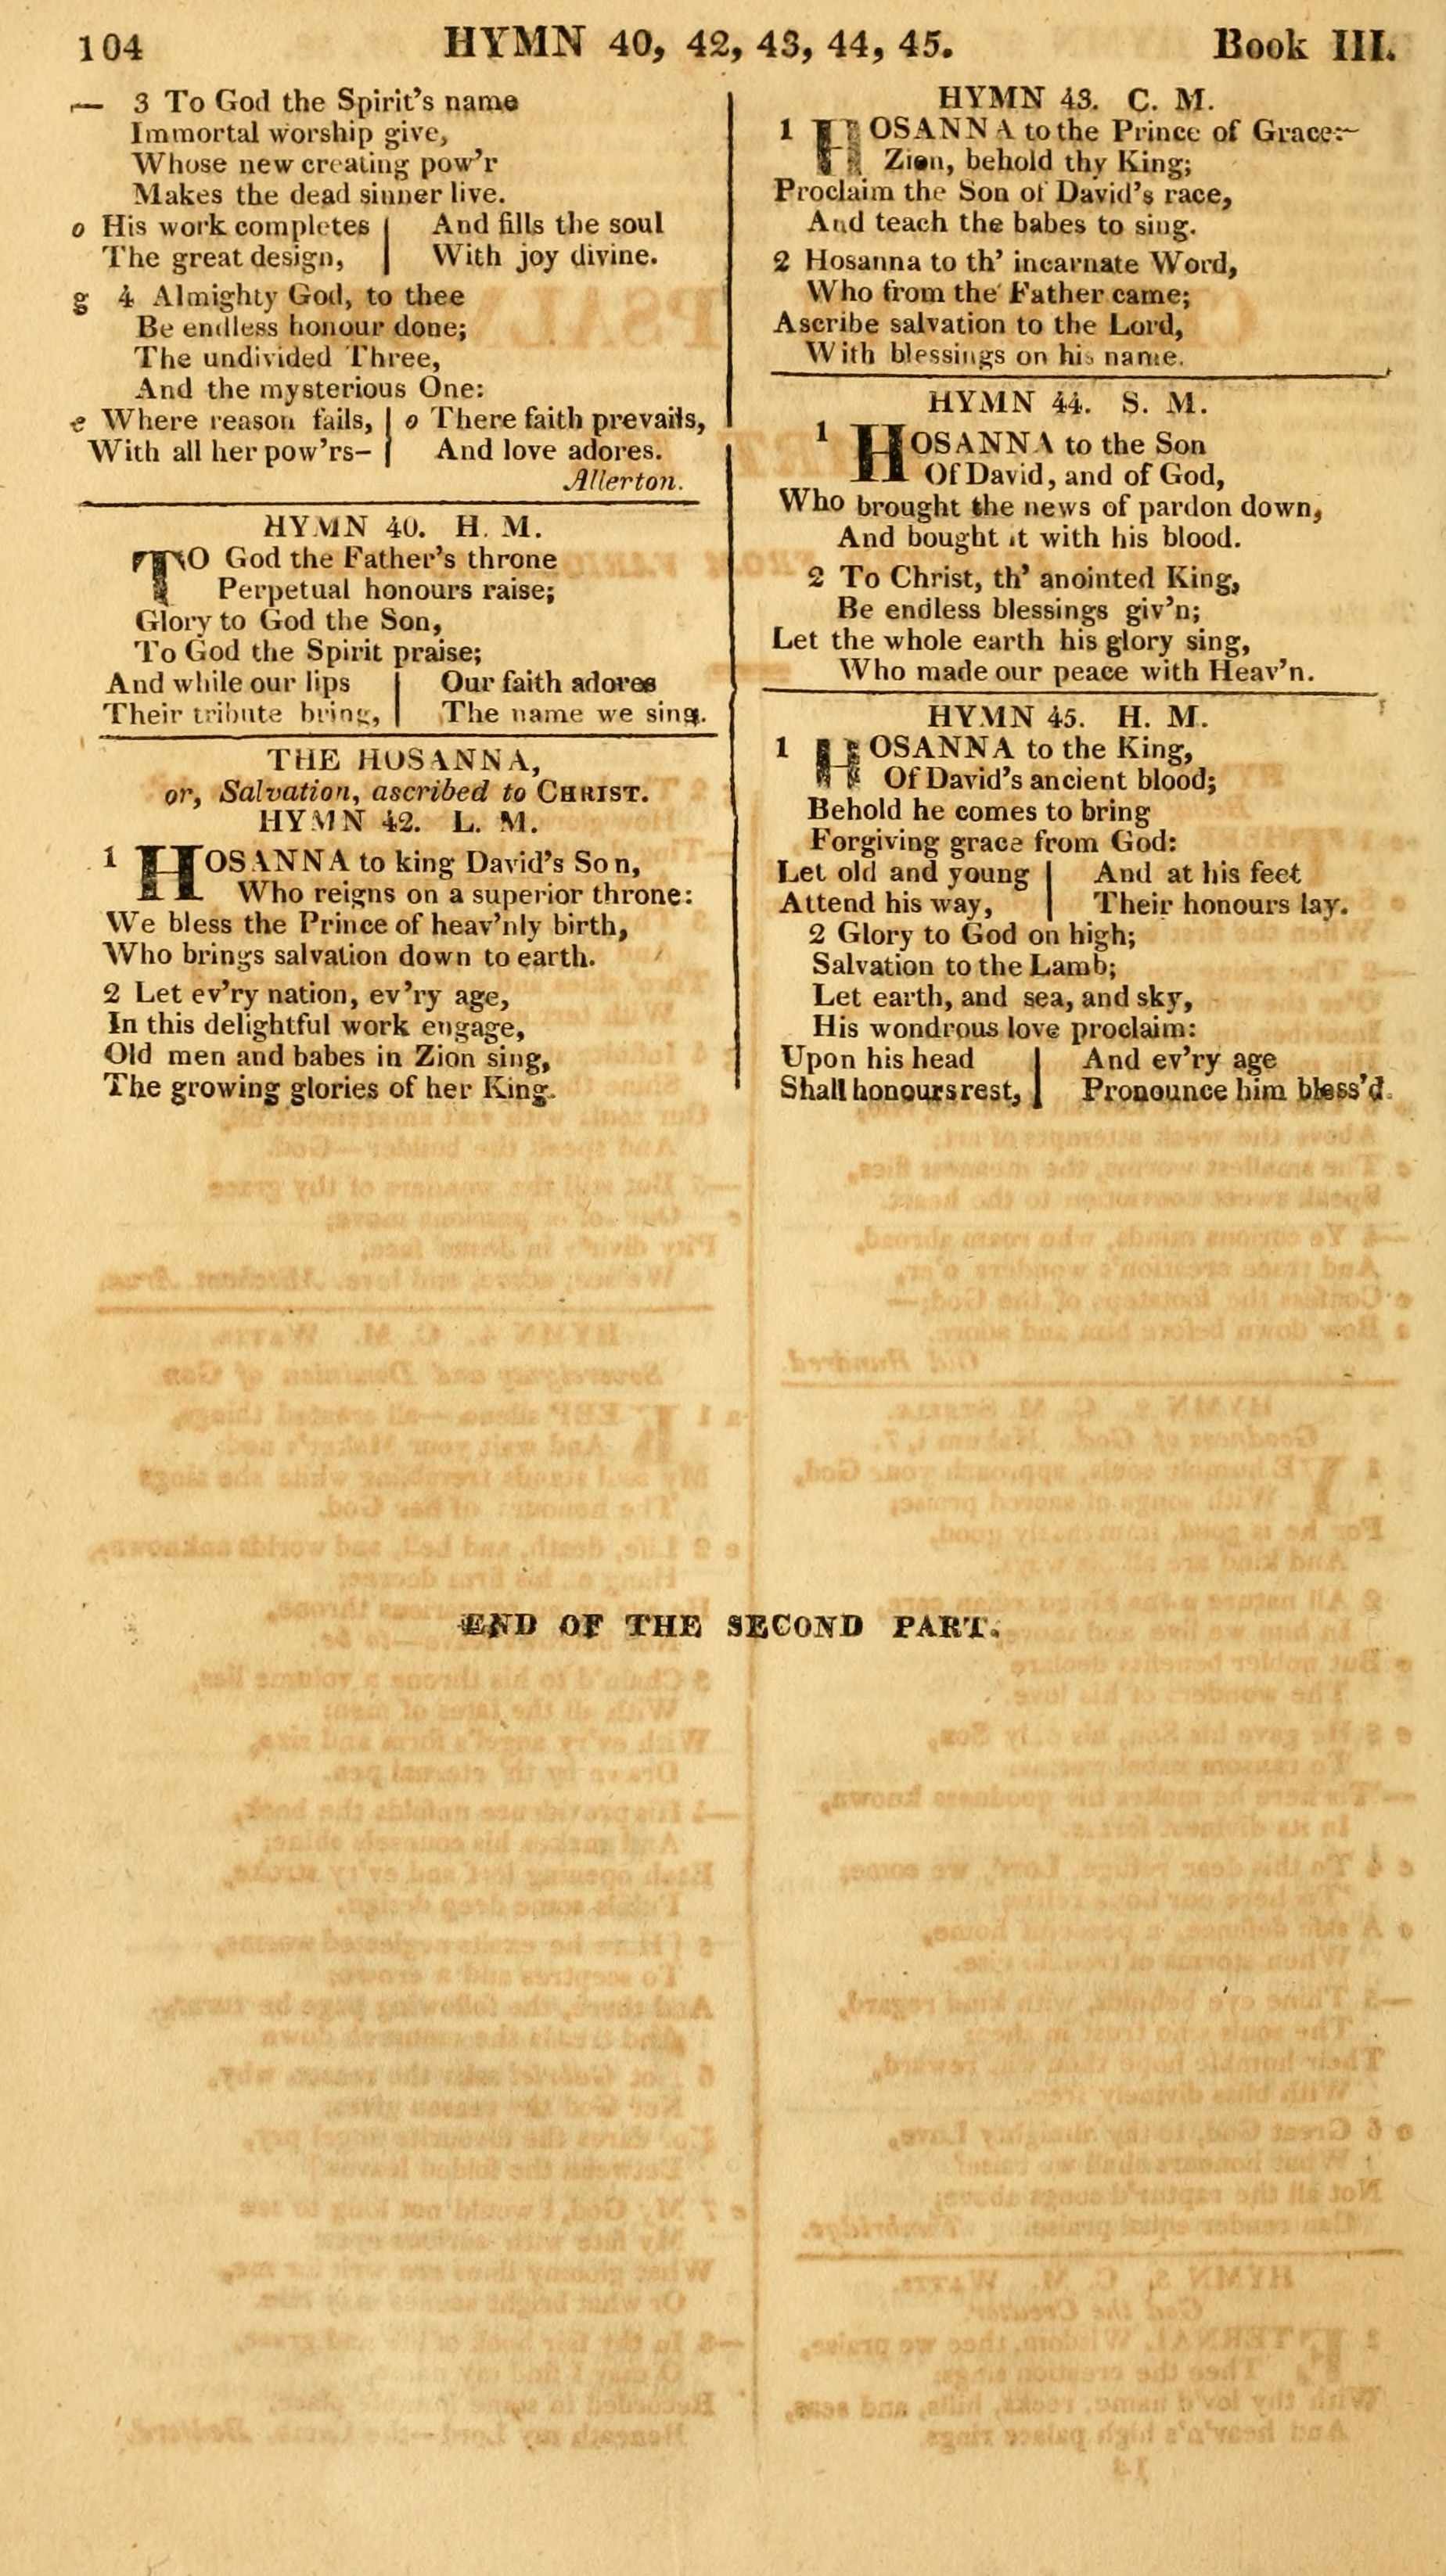 104 HYMN 40, 42, 43, 44, 45. Book III.
— 3 To God the Spirit's name
Immortal worship give,
Whose new creating pow'r
Makes the dead sinner live.
o His work completes | And fills the soul
The great design, | With joy divine.
g 4 Almighty God, to thee
Be endless honour done;
The undivided Three,
And the mysterious One:
e Where reason fails, | o There faith prevails,
With all her pow'rs– | And love adores.
Allerton.
HYMN 40. H. M.
TO God the Father's throne
Perpetual honours raise;
Glory to God the Son,
To God the Spirit praise;
And while our lips | Our faith adores
Their tribute bring, | The name we sing.
THE HOSANNA,
or, Salvation, ascribed to CHRIST.
HYMN 42. L. M.
1 HOSANNA to king David's Son,
Who reigns on a superior throne:
We bless the Prince of heav'nly birth,
Who brings salvation down to earth.
2 Let ev'ry nation, ev'ry age,
In this delightful work engage,
Old men and babes in Zion sing,
The growing glories of her King.
HYMN 43. C. M.
1 HOSANNA to the Prince of Grace:–
Zion, behold thy King;
Proclaim the Son of David's race,
And teach the babes to sing.
2 Hosanna to th' incarnate Word,
Who from the Father came;
Ascribe salvation to the Lord,
With blessings on his name.
HYMN 44. S. M.
1 HOSANNA to the Son
Of David, and of God,
Who brought the news of pardon down,
And bought it with his blood.
2 To Christ, th' anointed King,
Be endless blessings giv'n;
Let the whole earth his glory sing,
Who made our peace with Heav'n.
HYMN 45. H. M.
1 HOSANNA to the King,
Of David's ancient blood;
Behold he comes to bring
Forgiving grace from God:
Let old and young | And at his feet
Attend his way, | Their honours lay.
2 Glory to God on high;
Salvation to the Lamb;
Let earth, and sea, and sky,
His wondrous love proclaim:
Upon his head | And ev'ry age
Shall honours rest, | Pronounce him bless'd.
END OF THE SECOND PART.